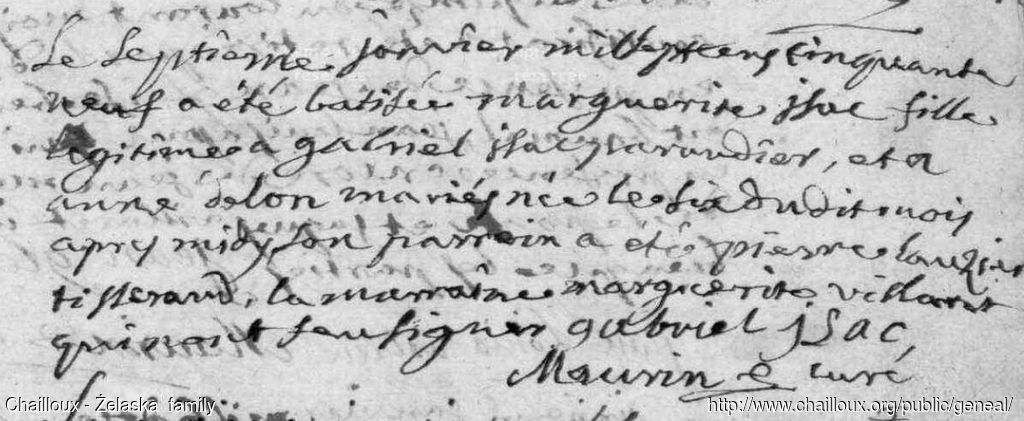 Le Septieme janvier mil sept cens cinquante
neuf a été batisée marguerite jsac fille
legitime a gabriel jsac, et a
anne delon mariés née le six dudit mois
apres midy son parrein a été pierre
tisserand, la marraine marguerite villaret
qui n'ont seu signer gabriel jsac,
Maurin curé
Chailloux - Żelaska family
http://www.chailloux.org/public/geneal/